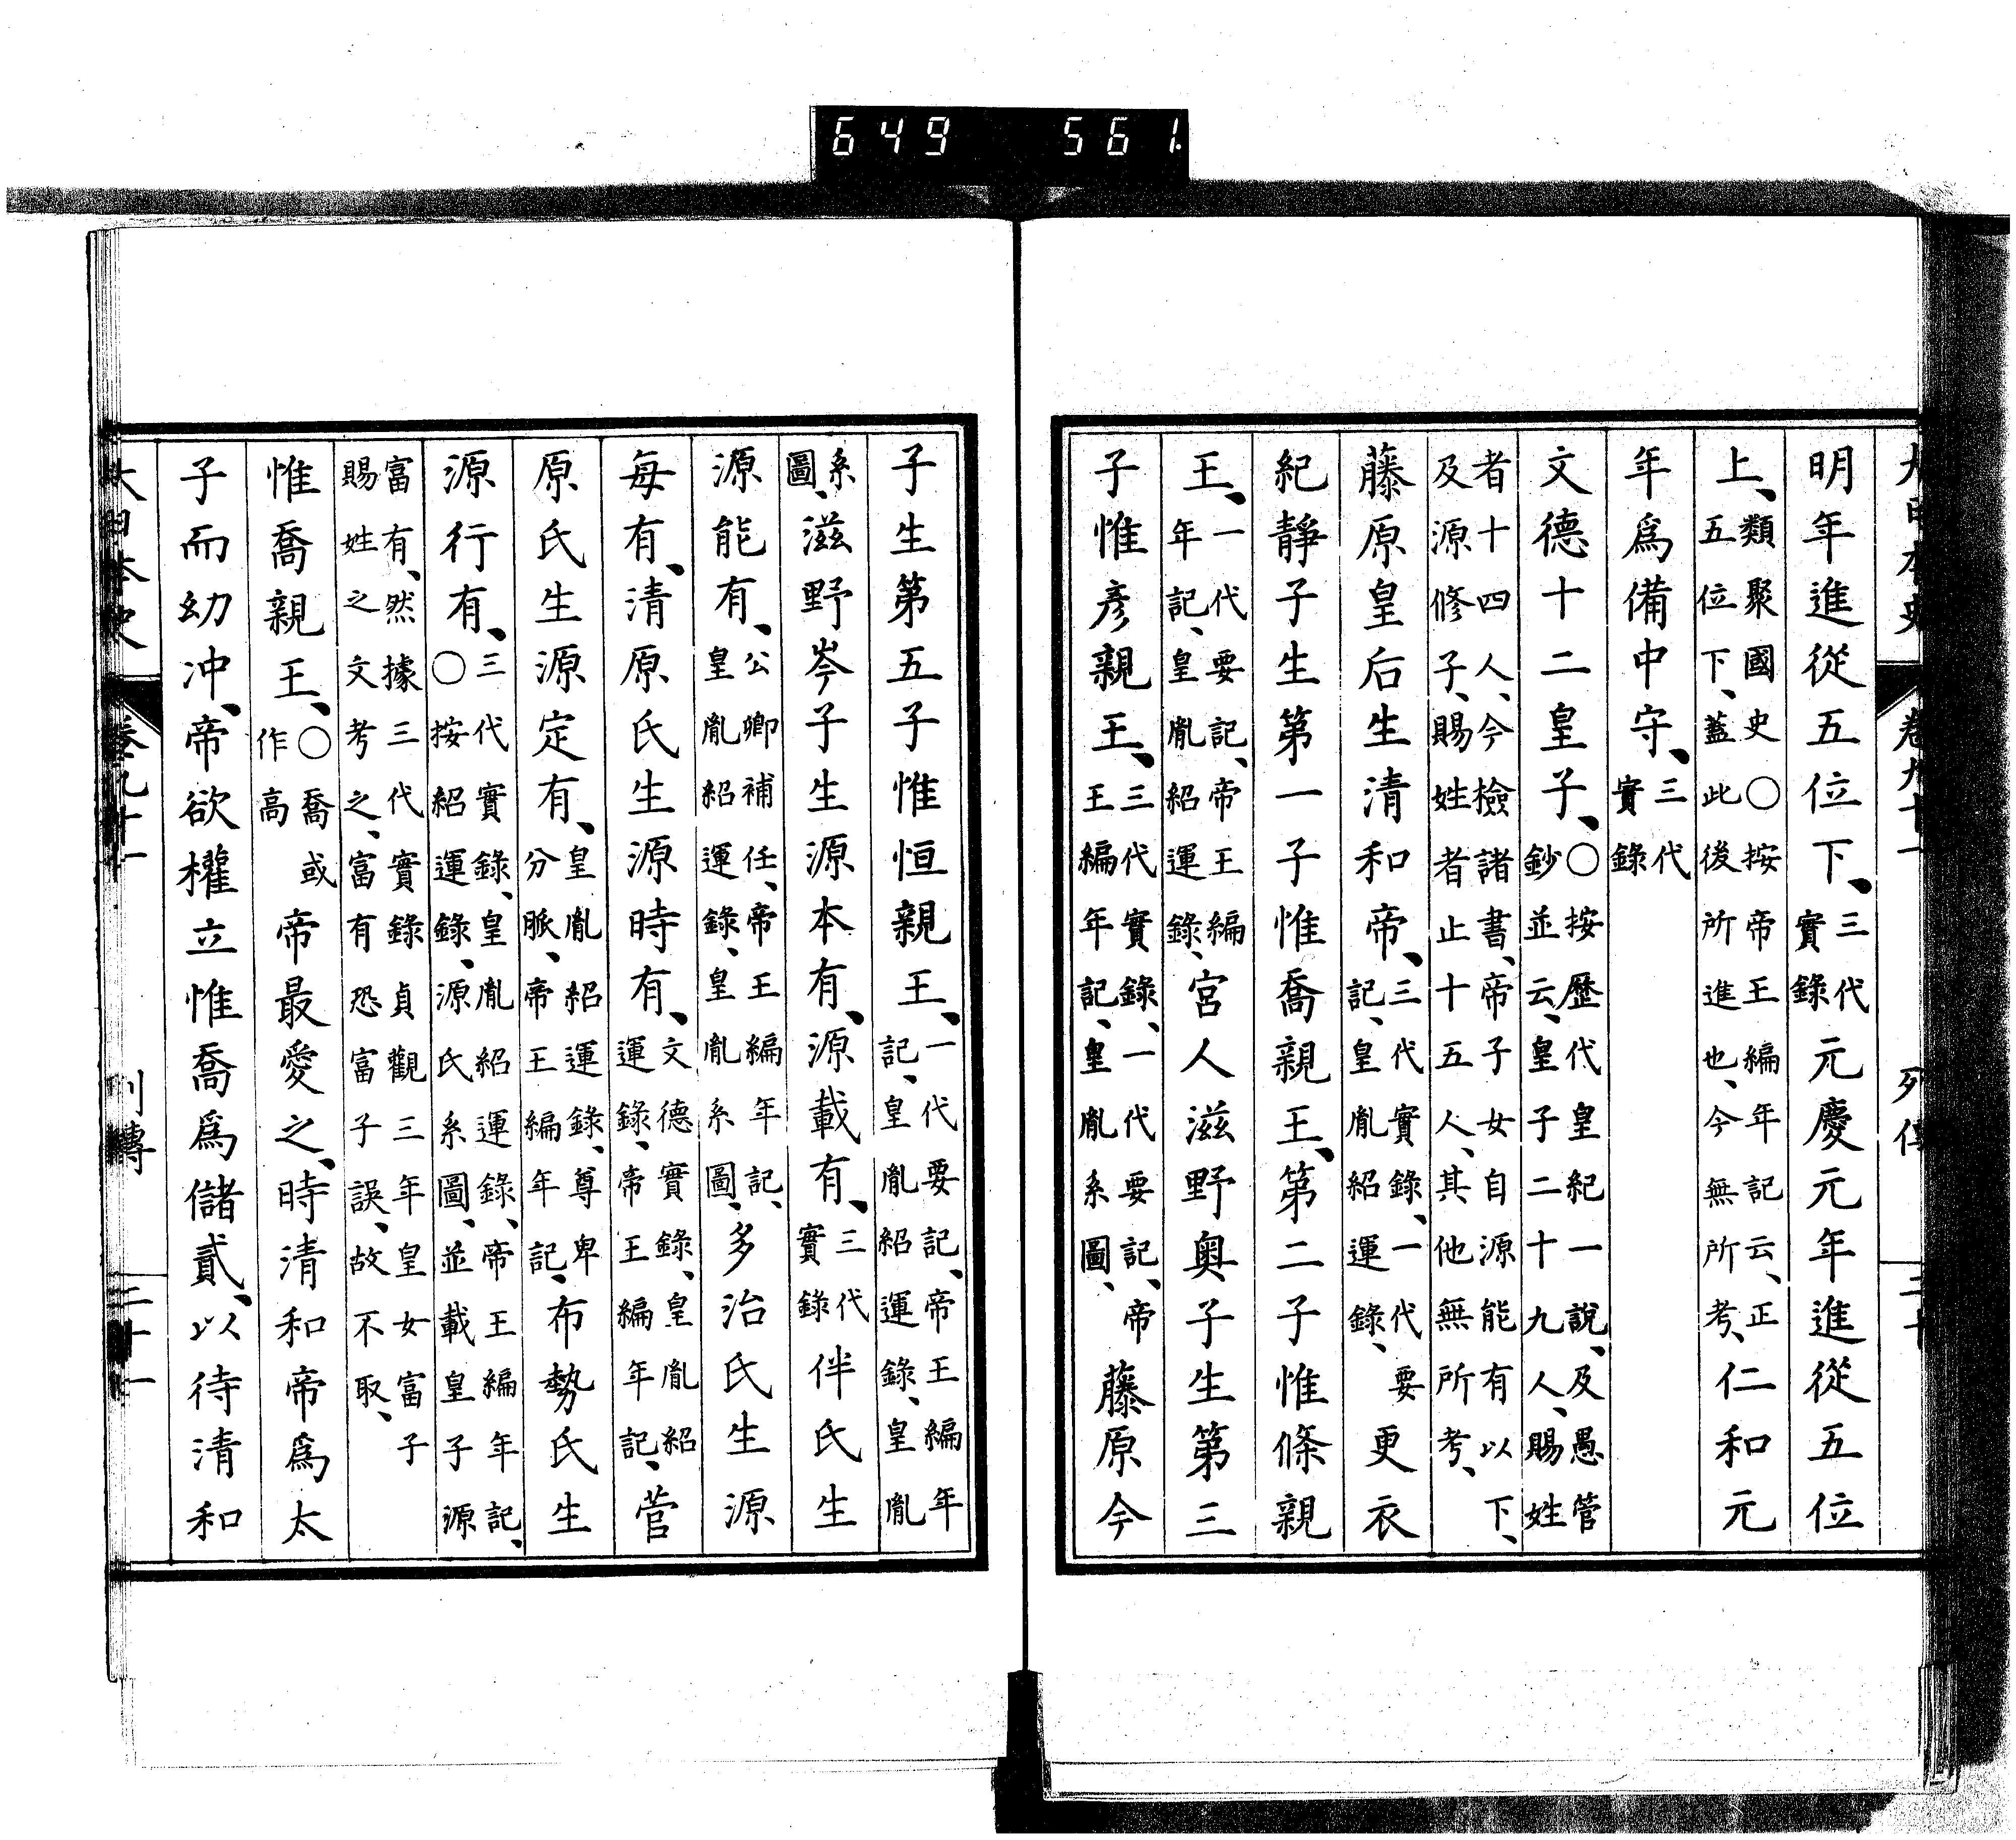 649 561.
明年進從五位下、三代實錄元慶元年進從五位
上、類聚國史○按帝王編年記云、正五位下、蓋此後所進也、今無所考、仁和元
年爲備中守、三代實錄
文德十二皇子、○按歷代皇紀一說、及愚管鈔並云、皇子二十九人、賜姓
者十四人、今檢諸書、帝子女自源能有以下、及源修子、賜姓者止十五人、其他無所考、
藤原皇后生清和帝、三代實錄、一代要記、皇胤紹運錄、更衣
紀靜子生第一子惟喬親王、第二子惟條親
王、一代要記、帝王編年記、皇胤紹運錄、宮人滋野奧子生第三
子惟彥親王、三代實錄、一代要記、帝王編年記、皇胤系圖、藤原今
子生第五子惟恒親王、一代要記、帝王編年記、皇胤紹運錄、皇胤
系圖、滋野岑子生源本有、源載有、三代實錄伴氏生
源能有、公卿補任、帝王編年記、皇胤紹運錄、皇胤系圖、多治氏生源
每有、清原氏生源時有、文德實錄、皇胤紹運錄、帝王編年記、菅
原氏生源定有、皇胤紹運錄、尊卑分脈、帝王編年記、布勢氏生
源行有、三代實錄、皇胤紹運錄、帝王編年記、○按紹運錄、源氏系圖、並載皇子源
富有、然據三代實錄貞觀三年皇女富子賜姓之文考之、富有恐富子誤、故不取、
惟喬親王、○喬或作高帝最愛之、時清和帝爲太
子而幼冲、帝欲權立惟喬爲儲貳、以待清和
大日本史 卷九十一 列傳 三十一